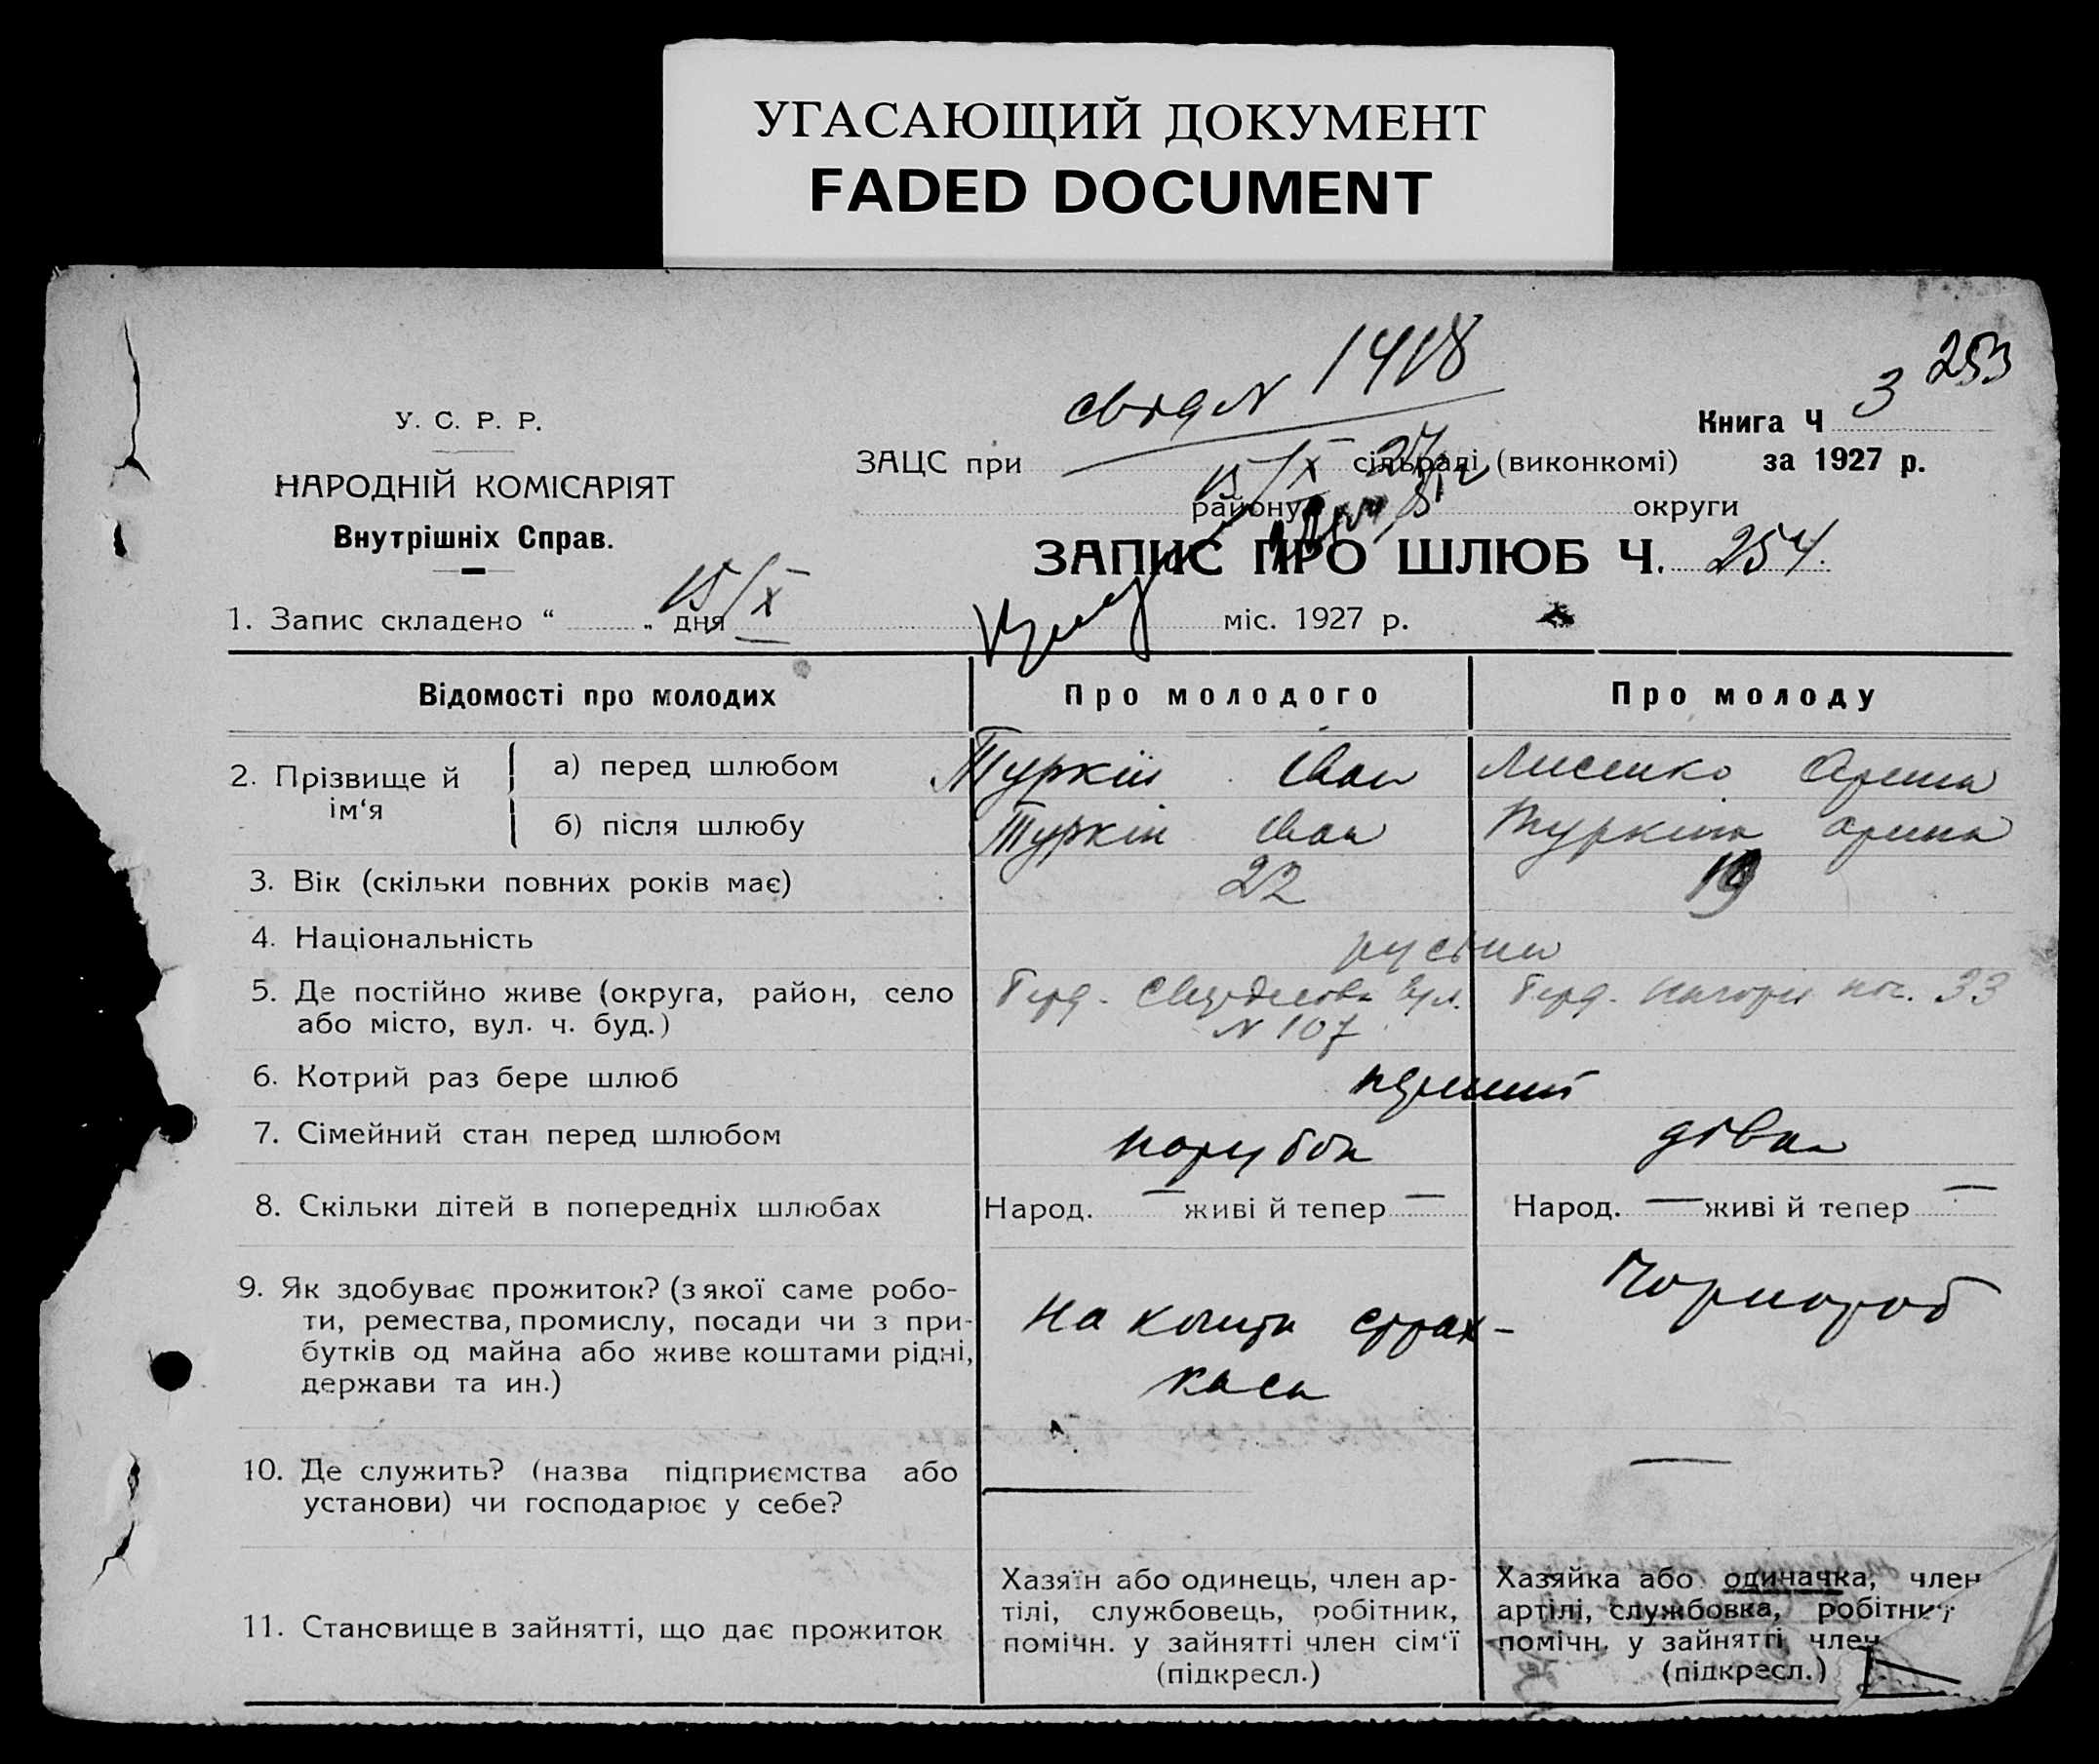 УГАСАЮЩИЙ ДОКУМЕНТ
FADED DOCUMENT
253
У. С. Р. Р.
НАРОДНІЙ КОМІСАРІЯТ
Внутрішніх Справ.
N 1418
Книга Ч 3
за 1927 р.
ЗАЦС при сільраді (виконкомі)
15/X 27
району округи
ЗАПИС ПРО ШЛЮБ Ч. 254.
1. Запис складено “ „ дня 15/X міс. 1927 р.
Відомості про молодих Про молодого Про молоду
2. Прізвище й ім‘я
а) перед шлюбом Туркін Іван Лисенко Орина
б) після шлюбу Туркін Іван Туркіна Орина
3. Вік (скільки повних років має) 22 19
4. Національність
5. Де постійно живе (округа, район, село Берд. Берд. 33
або місто, вул. ч. буд.) N 107
6. Котрий раз бере шлюб перший
7. Сімейний стан перед шлюбом парубок дівка
8. Скільки дітей в попередніх шлюбах Народ. — живі й тепер — Народ. — живі й тепер —
9. Як здобуває прожиток? (з якої саме робо-
ти, ремества, промислу, посади чи з при-
бутків од майна або живе коштами рідні,
держави та ин.)
На кошти страх-
каси
Чорнороб
10. Де служить? (назва підприємства або
установи) чи господарює у себе?
— —
11. Становище в зайнятті, що дає прожиток
Хазяїн або одинець, член ар-
тілі, службовець, робітник,
помічн. у зайнятті член сім‘ї
(підкресл.)
Хазяйка або одиначка, член
артілі, службовка,
помічн. у зайнятті член
(підкресл.)